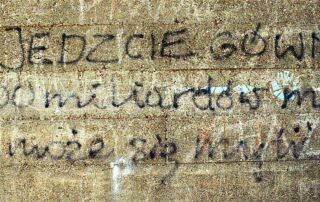 JEDZCIE GÓWN
00 miliardów m
może się mylić